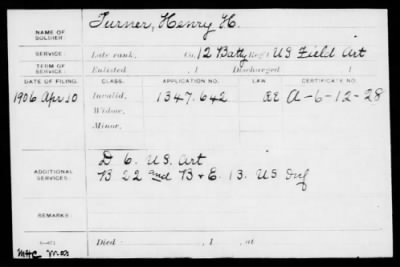 NAME OF SOLDIER: Turner, Henry H.
SERVICE: Late rank, Co. 12 Batty Reg't US Field Art
TERM OF SERVICE: Enlisted , 1 Discharged , 1
DATE OF FILING. CLASS. APPLICATION NO. LAW. CERTIFICATE NO.
1906 Apr 10 Invalid, 1347.642 A-6-12-28
Widow,
Minor,
ADDITIONAL SERVICES: D 6. US. Art
B 22 and B & E. 13. US Inf
REMARKS:
Died , 1 , at